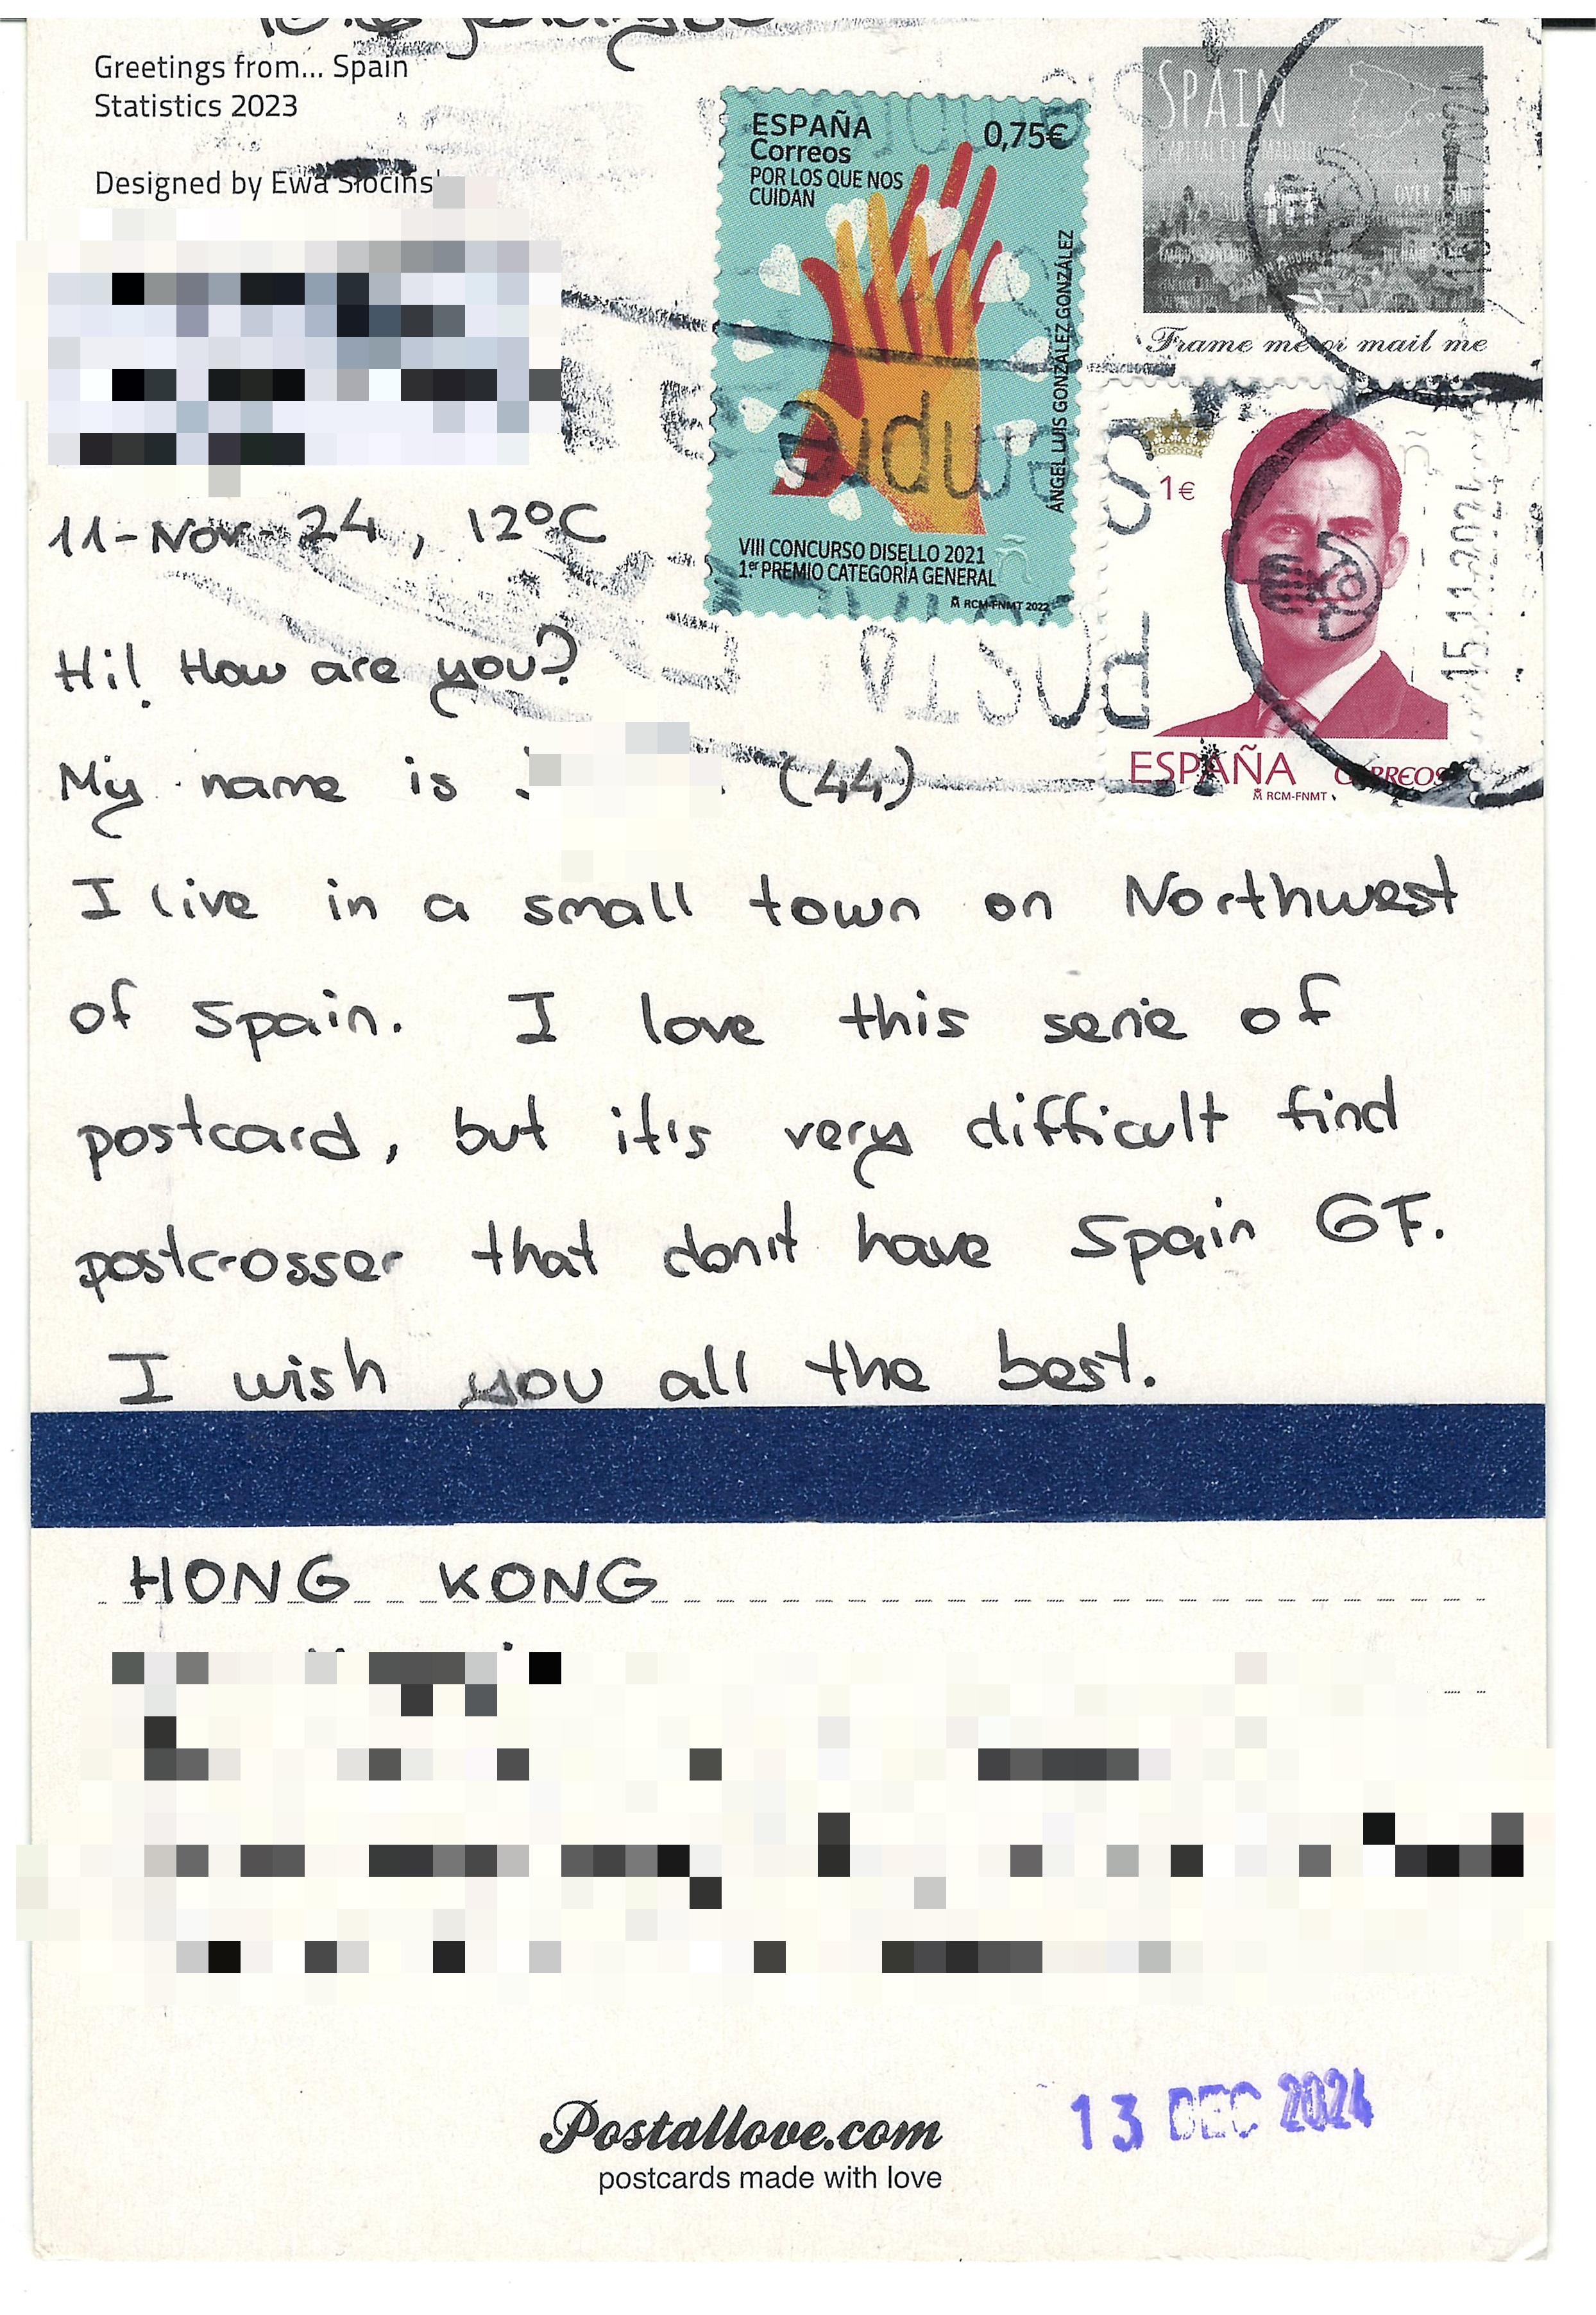 Greetings from... Spain
Statistics 2023
Designed by Ewa
SPAIN
OVER
Frame me or mail me
ESPAÑA 0,75€
Correos
POR LOS QUE NOS
CUIDAN
ÁNGEL LUIS GONZÁLEZ GONZÁLEZ
VIII CONCURSO DISELLO 2021
1.er PREMIO CATEGORÍA GENERAL
RCM-FNMT 2022
1€
ESPAÑA CORREOS
RCM-FNMT
15.11.2024
11-Nov-24, 12ºC
Hi! How are you?
My name is (44)
I live in a small town on Northwest
of Spain. I love this serie of
postcard, but it's very difficult find
postcrosser that don't have Spain GF.
I wish you all the best.
HONG KONG
Postallove.com
postcards made with love
13 DEC 2024